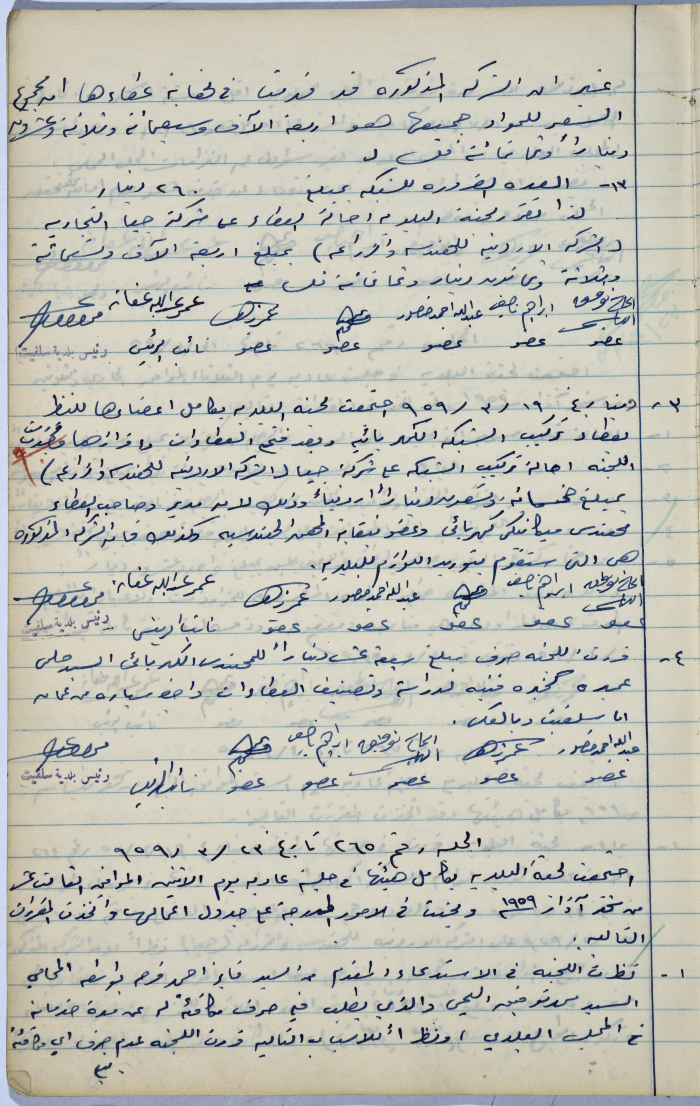 غير ان الشركه المذكوره قد قدمت في نهاية عطاءها ان مجموع
السعر للمواد جميعها هو اربعة الآف وسبعمائة وثلاثة وعشرون
ديناراً وثمانمائة فلس
١٣- العدد الضروره للشبكه بمبلغ ٢٦٠ دينار
لذا تقرر لجنة البلديه احالة العطاء على شركة جيا التجاريه
(الشركه الاردنيه للهندسه والزراعه) بمبلغ اربعة الآف وتسعمائة
وثلاثة وثمانون دينار وثمانمائة فلس
الحاج توفيق ابراهيم ناصيف عبدالله احمد خضور عمر عبدالله عفانه
عضو عضو عضو عضو عضو نائب الرئيس رئيس بلدية سلفيت
٣- بتاريخ ١٩ / ٣ / ٩٥٩ اجتمعت لجنة البلديه بكامل اعضاءها للنظر
بعطاء تركيب الشبكه الكهربائيه وبعد فتح العطاءات وافرازها قررت
اللجنه احالة تركيب الشبكه على شركة جيا (الشركه الاردنيه للهندسه والزراعه)
بمبلغ خمسمائة وعشرون ديناراً اردنياً وذلك لان مدير وصاحب العطاء
مهندس ميكانيكي كهربائي وعضو نقابة المهن الهندسيه وكذلك فان الشركه المذكوره
هي التي ستقوم بتوريد اللوازم للبلديه.
الحاج توفيق ابراهيم ناصيف عبدالله احمد خضور عمر عبدالله عفانه
عضو عضو عضو عضو عضو نائب الرئيس رئيس بلدية سلفيت
٤- قررت اللجنه صرف مبلغ اربعة عشر ديناراً للمهندس الكهربائي السيد حلمي
عميره كخبره فنيه لدراسة وتصنيف العطاءات واجرة سياره من عمان
الى سلفيت وبالعكس.
عبدالله احمد خضور الحاج توفيق ابراهيم ناصيف
عضو عضو عضو عضو عضو نائب الرئيس رئيس بلدية سلفيت
الجلسه رقم ٢٦٥ تاريخ ٢٣ / ٣ / ٩٥٩
اجتمعت لجنة البلديه بكامل هيئتها في جلسة عاديه يوم الاثنين الموافق الثالث عشر
من شهر آذار ١٩٥٩ وبحثت في الامور المدرجة على جدول اعمالها واتخذت المقررات
التاليه:
١- نظرت اللجنه في الاستدعاء المقدم من السيد فايز احمد فرحه بواسطة المحامي
السيد توفيق اليحيى والذي يطلب فيه صرف مكافئة له عن مدة خدماته
في المجلس البلدي، ونظراً للاسباب التاليه قررت اللجنه عدم صرف اي مكافئة